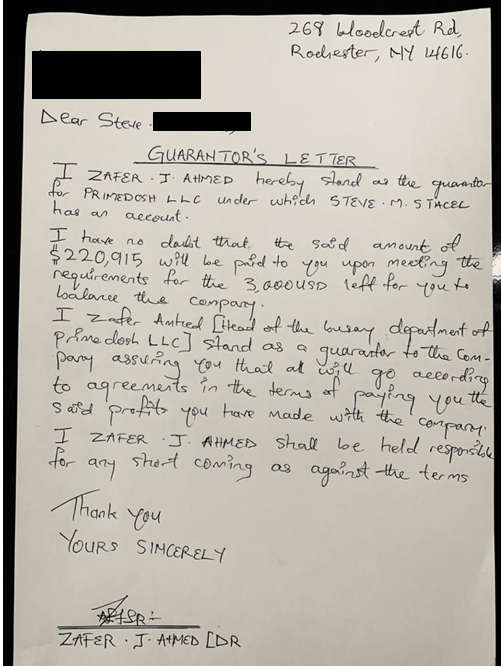 268 Woodcrest Rd,
Rochester, NY 14616.
Dear Steve.
GUARANTOR'S LETTER
I ZAFER.J.AHMED hereby stand as the guarantor
for PRIMEDOSH LLC under which STEVE.M.STACEL
has an account.
I have no doubt that the said amount of
$220,915 will be paid to you upon meeting the
requirements for the 3,000USD left for you to
balance the company.
I Zafer Amhed [Head of the busay department of
primedosh LLC] stand as a guarantor to the Com-
pany assuring you that all will go according
to agreements in the terms of paying you the
said profits you have made with the company.
I ZAFER.J.AHMED shall be held responsible
for any short coming as against the terms
Thank you
YOURS SINCERELY
ZAFER.J.AHMED [DR